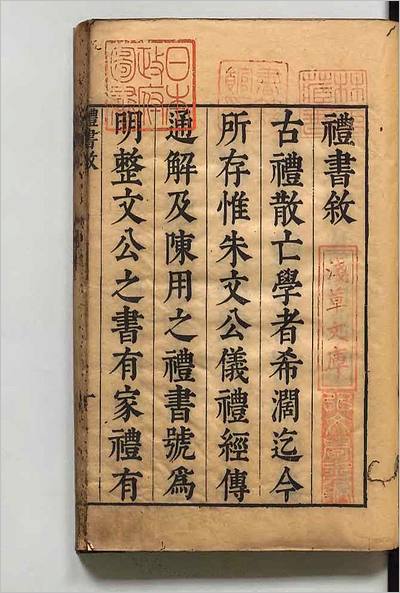 禮書敘
古禮散亡學者希濶迄今
所存惟朱文公儀禮經傳
通解及陳用之禮書號爲
明整文公之書有家禮有
禮書敘
淺草文庫
日本
政府
圖書